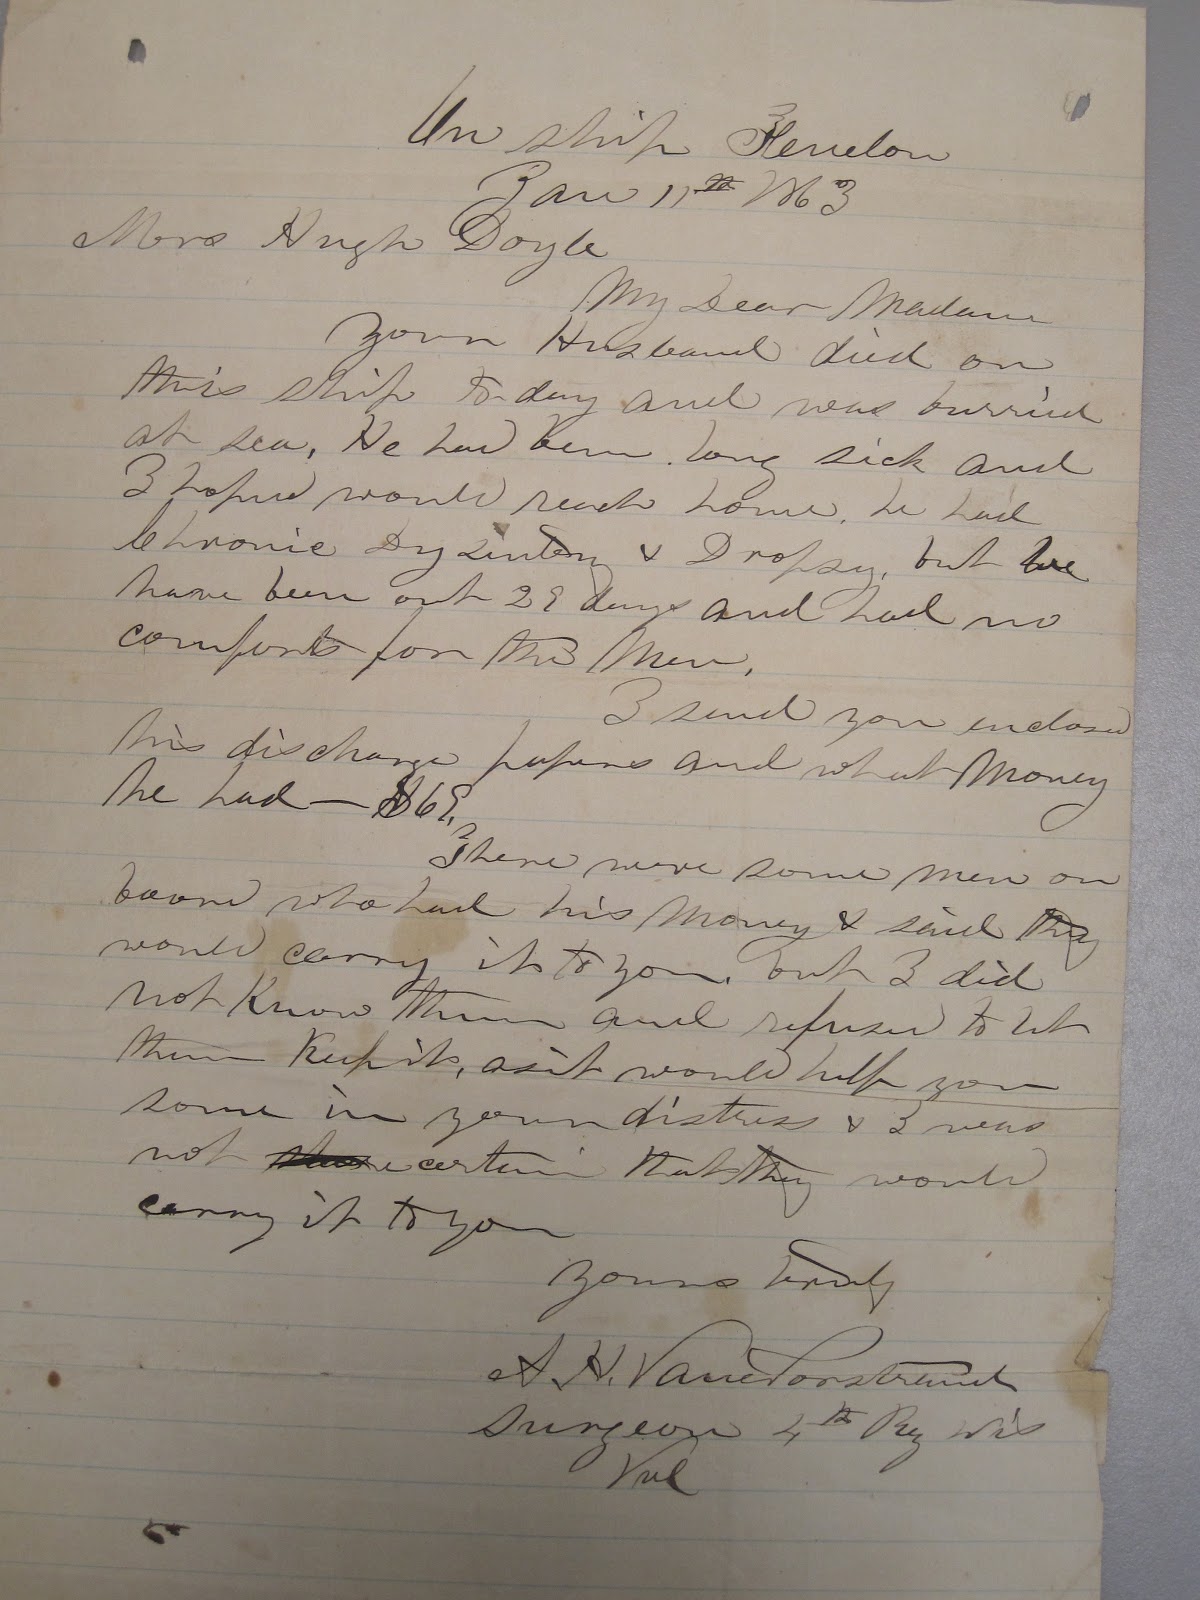 On ship Fenelon
Jan 11th 1863
Mrs Hugh Doyle
My Dear Madam
Your Husband died on
this ship to day and was burried
at sea, He had been long sick and
I hoped would reach home. he had
Chronic Dysintery & Dropsy, but we
have been out 28 days and had no
comforts for the Men.
I send you enclosed
his discharge papers and what Money
he had — $68.
There were some men on
board who had his Money & said they
would carry it to you. but I did
not Know them and refused to let
them Keep it, as it would help you
some in your distress & I was
not certain that they would
carry it to you
Yours truly
A. H. Van Norstrand
Surgeon 4th Reg Wis
Vol